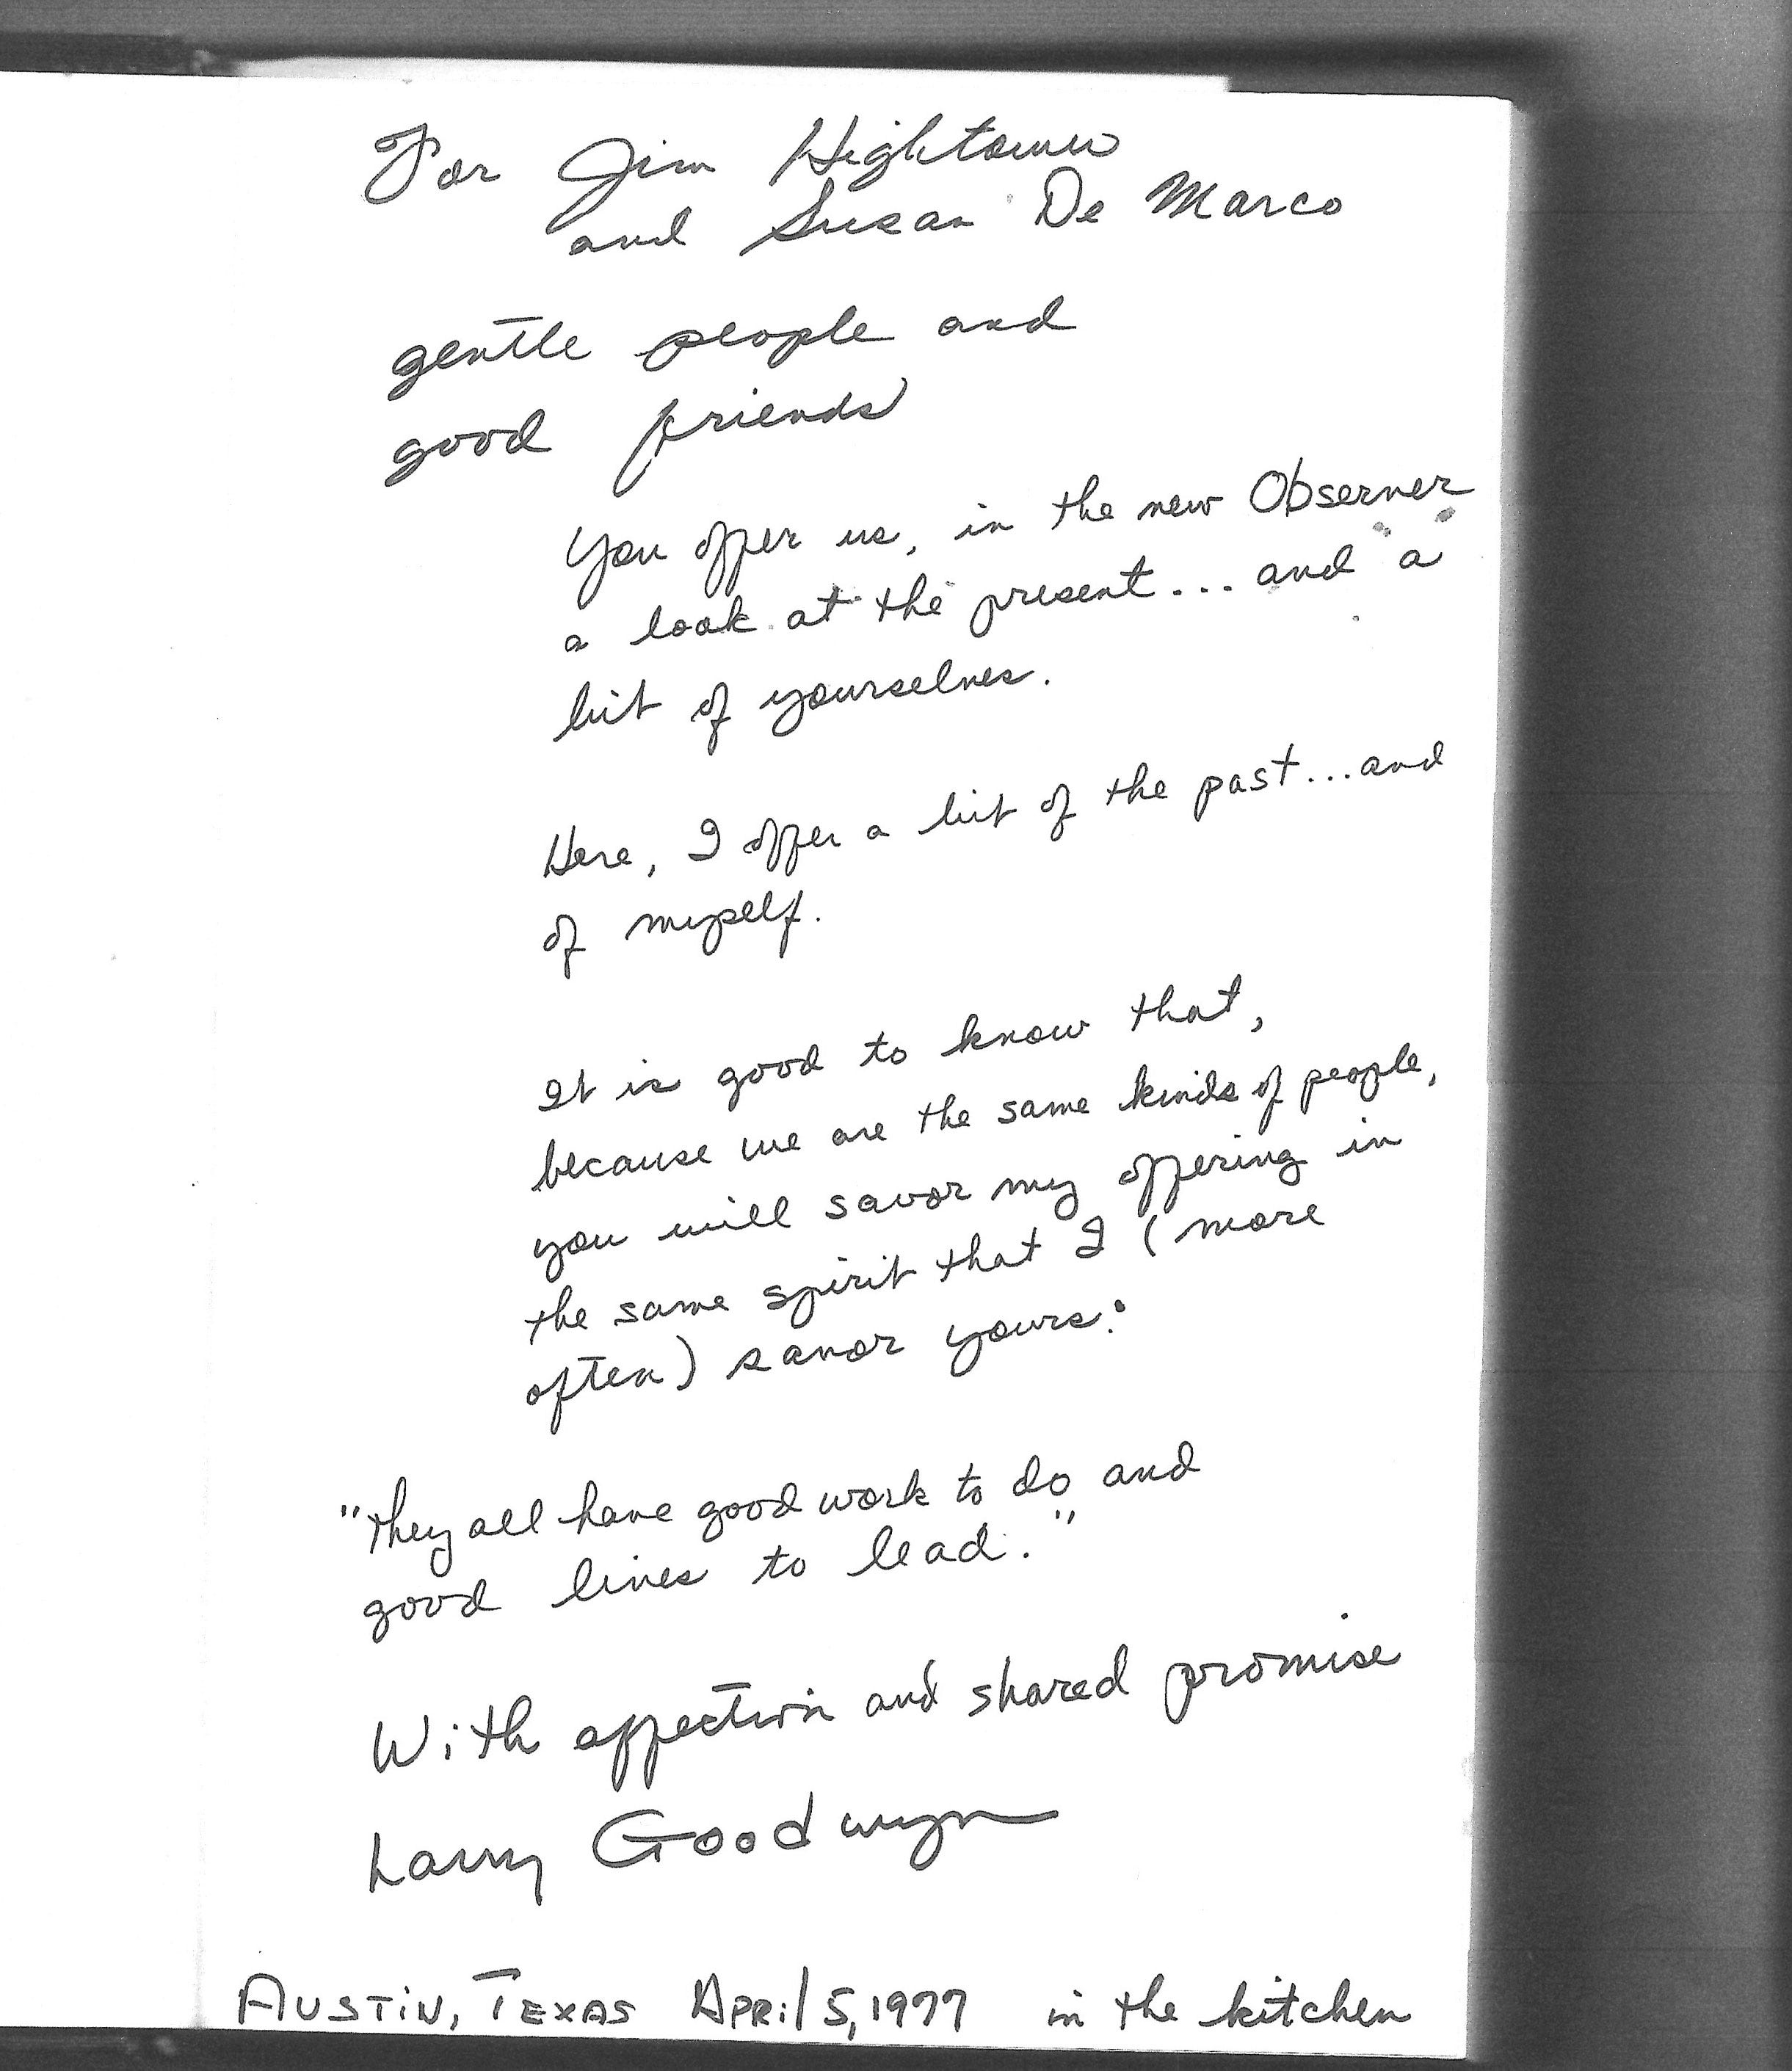 For Jim Hightower
and Susan De Marco
gentle people and
good friends
You offer us, in the new Observer
a look at the present... and a
bit of yourselves.
Here, I offer a bit of the past...and
of myself.
It is good to know that,
because we are the same kinds of people,
you will savor my offering in
the same spirit that I (more
often) savor yours:
"They all have good work to do and
good lives to lead."
With affection and shared promise
Larry Goodwyn
Austin, Texas April 5, 1977 in the kitchen